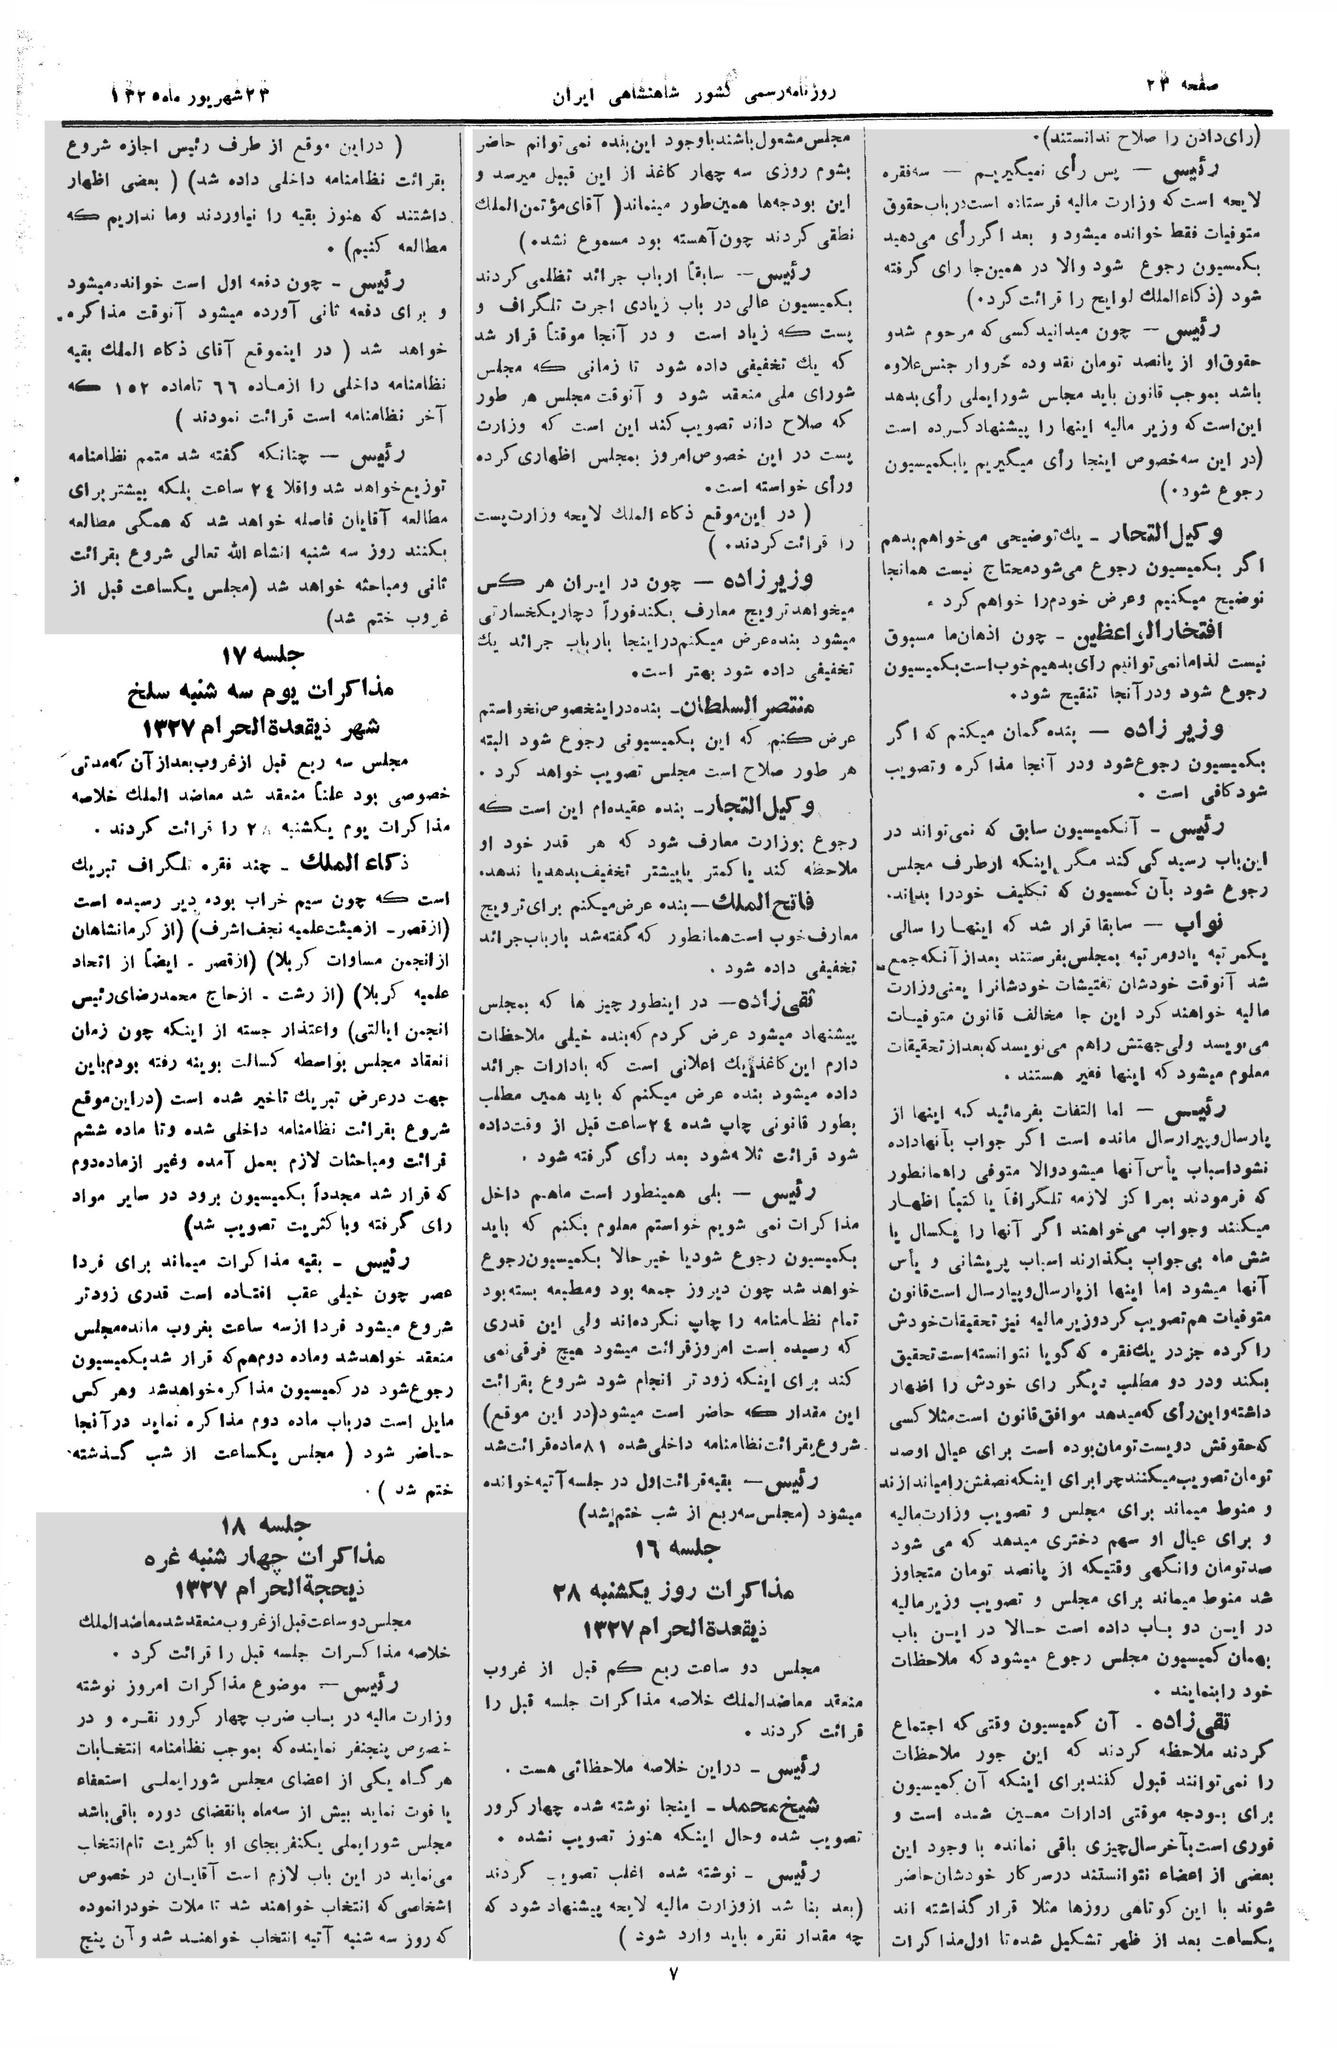 صفحه ۲۳
روزنامه رسمی کشور شاهنشاهی ایران
۲۳ شهریور ماه ۱۳۲۵
(رای دادن را صلاح ندانستند).
رئیس — پس رأی نمیگیریم — سه فقره
لایحه است که وزارت مالیه فرستاده است در باب حقوق
متوفیات فقط خوانده میشود و بعد اگر رأی می دهید
بکمسیون رجوع شود والا در همین جا رای گرفته
شود (ذکاء الملك لوایح را قرائت کرد.)
رئیس — چون میدانید کسی که مرحوم شد و
حقوق او از پانصد تومان نقد و ده خروار جنس علاوه
باشد بموجب قانون باید مجلس شورایملی رأی بدهد
این است که وزیر مالیه اینها را پیشنهاد کرده است
(در این سه خصوص اینجا رأی میگیریم یا بکمیسیون
رجوع شود.)
وکیل التجار ـ یك توضیحی می خواهم بدهم
اگر بکمیسیون رجوع می شود محتاج نیست همانجا
توضیح میکنیم و عرض خودم را خواهم کرد .
افتخار الواعظین ـ چون اذهان ما مسبوق
نیست لذا ما نمی توانیم رأی بدهیم خوب است بکمیسیون
رجوع شود و در آنجا تنقیح شود.
وزیر زاده — بنده گمان میکنم که اگر
بکمیسیون رجوع شود و در آنجا مذاکره و تصویب
شود کافی است .
رئیس ـ آنکمیسیون سابق که نمی تواند در
این باب رسیدگی کند مگر اینکه از طرف مجلس
رجوع شود بآن کمسیون که تکلیف خود را بداند.
نواب — سابقا قرار شد که اینها را سالی
یکمرتبه یا دو مرتبه بمجلس بفرستند بعد از آنکه جمع
شد آنوقت خودشان تفتیشات خودشانرا یعنی وزارت
مالیه خواهند کرد این جا مخالف قانون متوفیات
می نویسد ولی جهتش را هم می نویسد که بعد از تحقیقات
معلوم میشود که اینها فقیر هستند .
رئیس — اما التفات بفرمائید که اینها از
پارسال و پیرارسال مانده است اگر جواب بآنها داده
نشود اسباب یأس آنها میشود والا متوفی را همانطور
که فرمودند بمراکز لازمه تلگرافاً یا کتباً اظهار
میکنند و جواب می خواهند اگر آنها را یکسال یا
شش ماه بی جواب بگذارند اسباب پریشانی و یأس
آنها میشود اما اینها از پارسال و پیارسال است قانون
متوفیات هم تصویب کرد وزیر مالیه نیز تحقیقات خودش
را کرده جز در یك فقره که گویا نتوانسته است تحقیق
بکند و در دو مطلب دیگر رای خودش را اظهار
داشته و این رأی که میدهد موافق قانون است مثلا کسی
که حقوقش دویست تومان بوده است برای عیال او صد
تومان تصویب میکنند چرا برای اینکه نصفش را میاندازند
و منوط میماند برای مجلس و تصویب وزارت مالیه
و برای عیال او سهم دختری میدهد که می شود
صد تومان وانگهی وقتیکه از پانصد تومان متجاوز
شد منوط میماند برای مجلس و تصویب وزیر مالیه
در این دو باب داده است حالا در این باب
بهمان کمیسیون مجلس رجوع میشود که ملاحظات
خود را بنمایند .
تقی زاده . آن کمیسیون وقتی که اجتماع
کردند ملاحظه کردند که این جور ملاحظات
را نمی توانند قبول کنند برای اینکه آن کمیسیون
برای بودجه موقتی ادارات معین شده است و
فوری است بآخر سال چیزی باقی نمانده با وجود این
بعضی از اعضاء نتوانستند در سر کار خودشان حاضر
شوند با این کوتاهی روزها مثلا قرار گذاشته اند
یکساعت بعد از ظهر تشکیل شده تا اول مذاکرات
مجلس مشغول باشند با وجود این بنده نمی توانم حاضر
بشوم روزی سه چهار کاغذ از این قبیل میرسد و
این بودجه ها همین طور میماند ( آقای مؤتمن الملك
نطقی کردند چون آهسته بود مسموع نشد.)
رئیس — سابقاً ارباب جرائد تظلمی کردند
بکمیسیون عالی در باب زیادی اجرت تلگراف و
پست که زیاد است و در آنجا موقتاً قرار شد
که یك تخفیفی داده شود تا زمانی که مجلس
شورای ملی منعقد شود و آنوقت مجلس هر طور
که صلاح داند تصویب کند این است که وزارت
پست در این خصوص امروز بمجلس اظهاری کرده
و رأی خواسته است.
( در این موقع ذکاء الملك لایحه وزارت پست
را قرائت کردند. )
وزیر زاده — چون در ایران هر کس
میخواهد ترویج معارف بکند فوراً دچار یکخسارتی
میشود بنده عرض میکنم در اینجا بارباب جرائد یك
تخفیفی داده شود بهتر است.
منتصر السلطان ـ بنده در اینخصوص نخواستم
عرض کنم که این بکمیسیونی رجوع شود البته
هر طور صلاح است مجلس تصویب خواهد کرد .
وکیل التجار ـ بنده عقیده ام این است که
رجوع بوزارت معارف شود که هر قدر خود او
ملاحظه کند یا کمتر یا بیشتر تخفیف بدهد یا ندهد.
فاتح الملك — بنده عرض میکنم برای ترویج
معارف خوب است همانطور که گفته شد بارباب جرائد
تخفیفی داده شود .
تقی زاده — در اینطور چیز ها که بمجلس
پیشنهاد میشود عرض کردم که بنده خیلی ملاحظات
دارم این کاغذ یك اعلانی است که بادارات جرائد
داده میشود بنده عرض میکنم که باید همین مطلب
بطور قانونی چاپ شده ۲۴ ساعت قبل از وقت داده
شود قرائت ثلاثه شود بعد رأی گرفته شود .
رئیس — بلی همینطور است ما هم داخل
مذاکرات نمی شویم خواستم معلوم بکنم که باید
بکمیسیون رجوع شود یا خیر حالا بکمیسیون رجوع
خواهد شد چون دیروز جمعه بود و مطبعه بسته بود
تمام نظامنامه را چاپ نکرده اند ولی این قدری
که رسیده است امروز قرائت میشود هیچ فرقی نمی
کند برای اینکه زود تر انجام شود شروع بقرائت
این مقدار که حاضر است میشود (در این موقع)
شروع بقرائت نظامنامه داخلی شده ۸۱ ماده قرائت شد
رئیس — بقیه قرائت اول در جلسه آتیه خوانده
میشود (مجلس سه ربع از شب ختم شد)
جلسه ۱۶
مذاکرات روز یکشنبه ۲۸
ذیقعدة الحرام ۱۳۲۷
مجلس دو ساعت ربع کم قبل از غروب
منعقد معاضد الملك خلاصه مذاکرات جلسه قبل را
قرائت کردند .
رئیس ـ در این خلاصه ملاحظاتی هست .
شیخ محمد ـ اینجا نوشته شده چهار کرور
تصویب شده و حال اینکه هنوز تصویب نشده .
رئیس ـ نوشته شده اغلب تصویب کردند
(بعد بنا شد از وزارت مالیه لایحه پیشنهاد شود که
چه مقدار نقره باید وارد شود )
( در این موقع از طرف رئیس اجازه شروع
بقرائت نظامنامه داخلی داده شد) ( بعضی اظهار
داشتند که هنوز بقیه را نیاوردند و ما نداریم که
مطالعه کنیم) .
رئیس ـ چون دفعه اول است خوانده میشود
و برای دفعه ثانی آورده میشود آنوقت مذاکره
خواهد شد ( در اینموقع آقای ذکاء الملك بقیه
نظامنامه داخلی را از ماده ۶۶ تا ماده ۱۵۲ که
آخر نظامنامه است قرائت نمودند )
رئیس — چنانکه گفته شد متمم نظامنامه
توزیع خواهد شد و اقلا ۲٤ ساعت بلکه بیشتر برای
مطالعه آقایان فاصله خواهد شد که همگی مطالعه
بکنند روز سه شنبه انشاء الله تعالی شروع بقرائت
ثانی و مباحثه خواهد شد (مجلس یکساعت قبل از
غروب ختم شد)
جلسه ۱۷
مذاکرات یوم سه شنبه سلخ
شهر ذیقعدة الحرام ۱۳۲۷
مجلس سه ربع قبل از غروب بعد از آن که مدتی
خصوصی بود علناً منعقد شد معاضد الملك خلاصه
مذاکرات یوم یکشنبه ۲۸ را قرائت کردند .
ذکاء الملك ـ چند فقره تلگراف تبریك
است که چون سیم خراب بوده دیر رسیده است
(از قصر ـ از هیئت علمیه نجف اشرف) (از کرمانشاهان
از انجمن مساوات کربلا) (از قصر ـ ایضاً از اتحاد
علمیه کربلا) (از رشت ـ از حاج محمد رضای رئیس
انجمن ایالتی) و اعتذار جسته از اینکه چون زمان
انعقاد مجلس بواسطه کسالت بوینه رفته بودم باین
جهت در عرض تبریك تاخیر شده است (در این موقع
شروع بقرائت نظامنامه داخلی شده و تا ماده ششم
قرائت و مباحثات لازم بعمل آمده و غیر از ماده دوم
که قرار شد مجدداً بکمیسیون برود در سایر مواد
رای گرفته و با کثریت تصویب شد)
رئیس ـ بقیه مذاکرات میماند برای فردا
عصر چون خیلی عقب افتاده است قدری زودتر
شروع میشود فردا از سه ساعت بغروب مانده مجلس
منعقد خواهد شد و ماده دوم هم که قرار شد بکمیسیون
رجوع شود در کمیسیون مذاکره خواهد شد و هر کس
مایل است در باب ماده دوم مذاکره نماید در آنجا
حاضر شود ( مجلس یکساعت از شب گذشته
ختم شد ) .
جلسه ۱۸
مذاکرات چهار شنبه غره
ذیحجة الحرام ۱۳۲۷
مجلس دو ساعت قبل از غروب منعقد شد معاضد الملك
خلاصه مذاکرات جلسه قبل را قرائت کرد .
رئیس — موضوع مذاکرات امروز نوشته
وزارت مالیه در باب ضرب چهار کرور نقره و در
خصوص پنجنفر نماینده که بموجب نظامنامه انتخابات
هر گاه یکی از اعضای مجلس شورایملی استعفاء
یا فوت نماید بیش از سه ماه بانقضای دوره باقی باشد
مجلس شورایملی یکنفر بجای او با کثریت تام انتخاب
می نماید در این باب لازم است آقایان در خصوص
اشخاصی که انتخاب خواهند شد تأملات خود را نموده
که روز سه شنبه آتیه انتخاب خواهند شد و آن پنج
۷